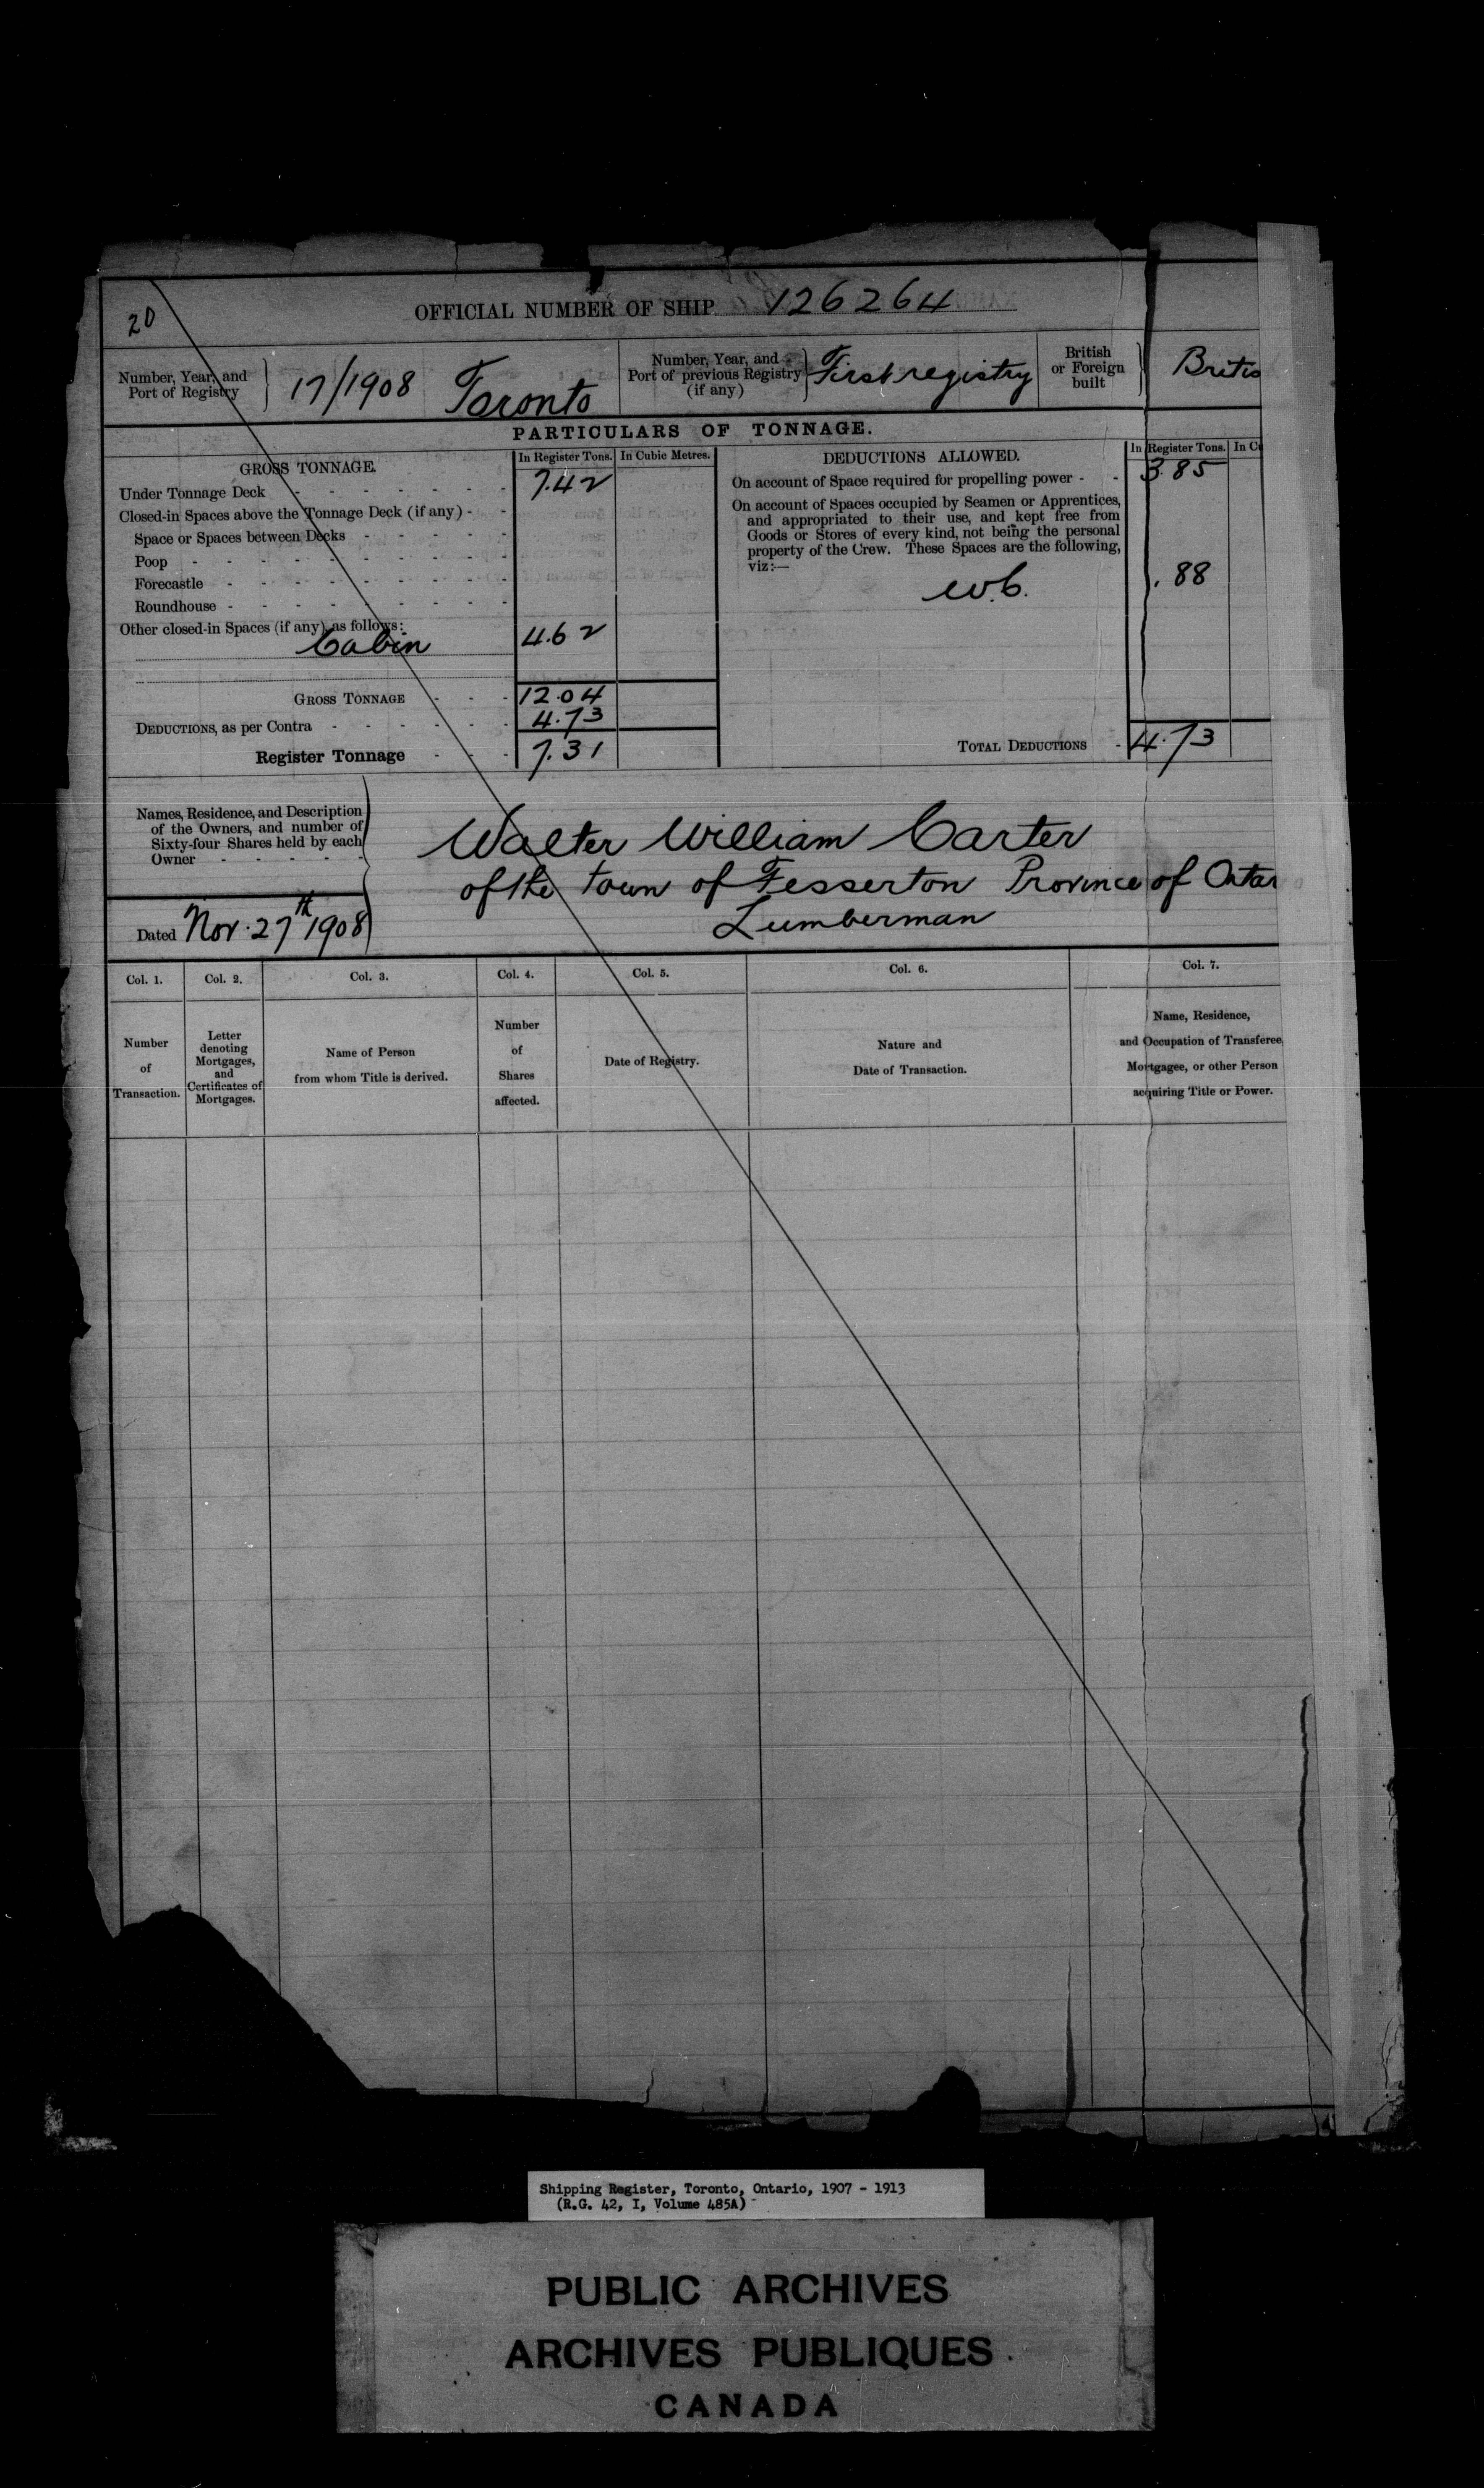 20
OFFICIAL NUMBER OF SHIP 126264
Number, Year, and
Port of Registry
17/1908 Toronto
Number, Year, and
Port of previous Registry
(if any)
First registry
British
or Foreign
built
Britis
PARTICULARS OF TONNAGE.
GROSS TONNAGE.
In Register Tons. In Cubic Metres.
Under Tonnage Deck - - - - - - - 7.42
Closed-in Spaces above the Tonnage Deck (if any) - -
Space or Spaces between Decks - - - - -
Poop - - - - - - - - -
Forecastle - - - - - - - -
Roundhouse - - - - - - - -
Other closed-in Spaces (if any) as follows:
Cabin 4.62
GROSS TONNAGE - - - 12.04
DEDUCTIONS, as per Contra - - - - - - 4.73
Register Tonnage - - - 7.31
DEDUCTIONS ALLOWED.
In Register Tons. In C
On account of Space required for propelling power - - 3.85
On account of Spaces occupied by Seamen or Apprentices,
and appropriated to their use, and kept free from
Goods or Stores of every kind, not being the personal
property of the Crew. These Spaces are the following,
viz:—
W.C. .88
TOTAL DEDUCTIONS - 4.73
Names, Residence, and Description
of the Owners, and number of
Sixty-four Shares held by each
Owner - - - - -
Dated Nov. 27th 1908
Walter William Carter
of the town of Fesserton Province of Ontar
Lumberman
Col. 1. Col. 2. Col. 3. Col. 4. Col. 5. Col. 6. Col. 7.
Number
of
Transaction.
Letter
denoting
Mortgages,
and
Certificates of
Mortgages.
Name of Person
from whom Title is derived.
Number
of
Shares
affected.
Date of Registry.
Nature and
Date of Transaction.
Name, Residence,
and Occupation of Transferee,
Mortgagee, or other Person
acquiring Title or Power.
Shipping Register, Toronto, Ontario, 1907 - 1913
(R.G. 42, I, Volume 485A)
PUBLIC ARCHIVES
ARCHIVES PUBLIQUES
CANADA